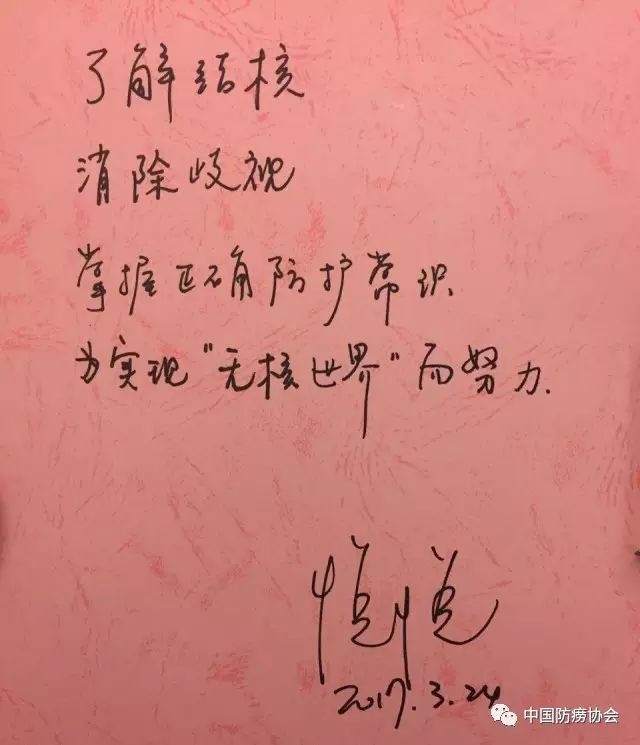 了解结核
消除歧视
掌握正确防护常识
为实现"无核世界"而努力.
2017.3.24
中国防痨协会